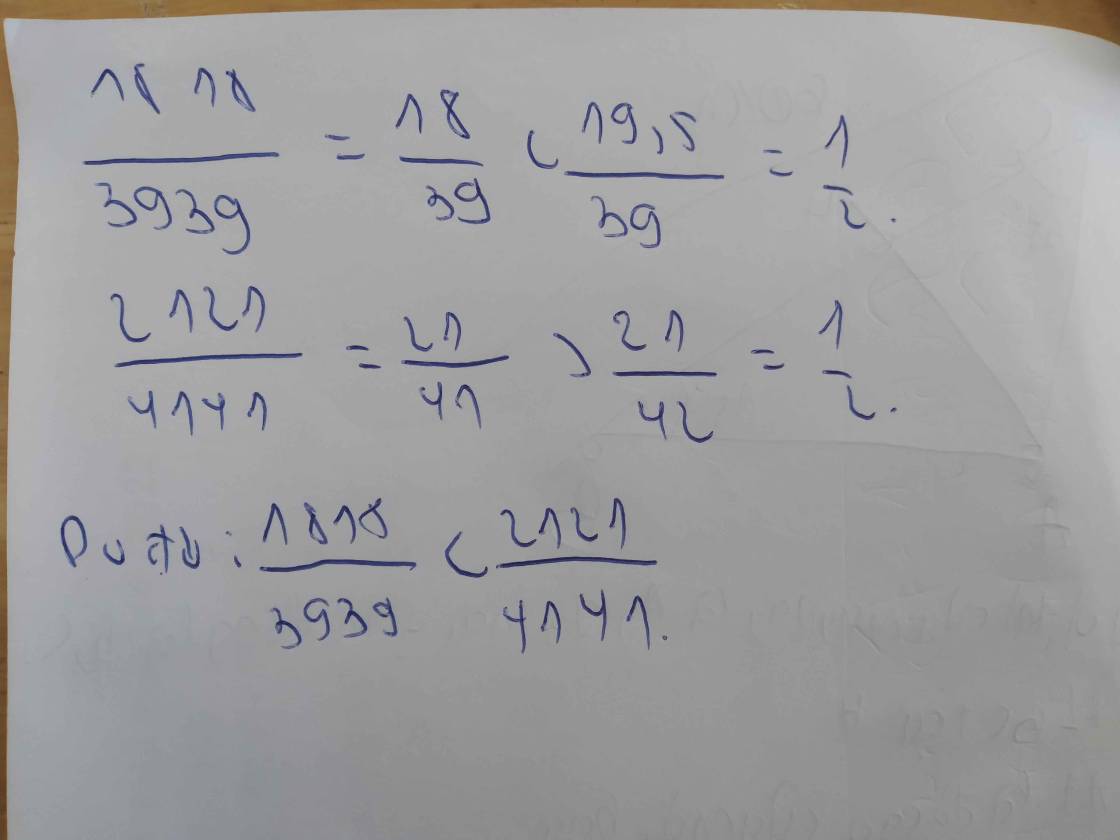 1818/3939 = 18/39 < 19,5/39 = 1/2.
2121/4141 = 21/41 > 21/42 = 1/2.
: 1818/3939 < 2121/4141.